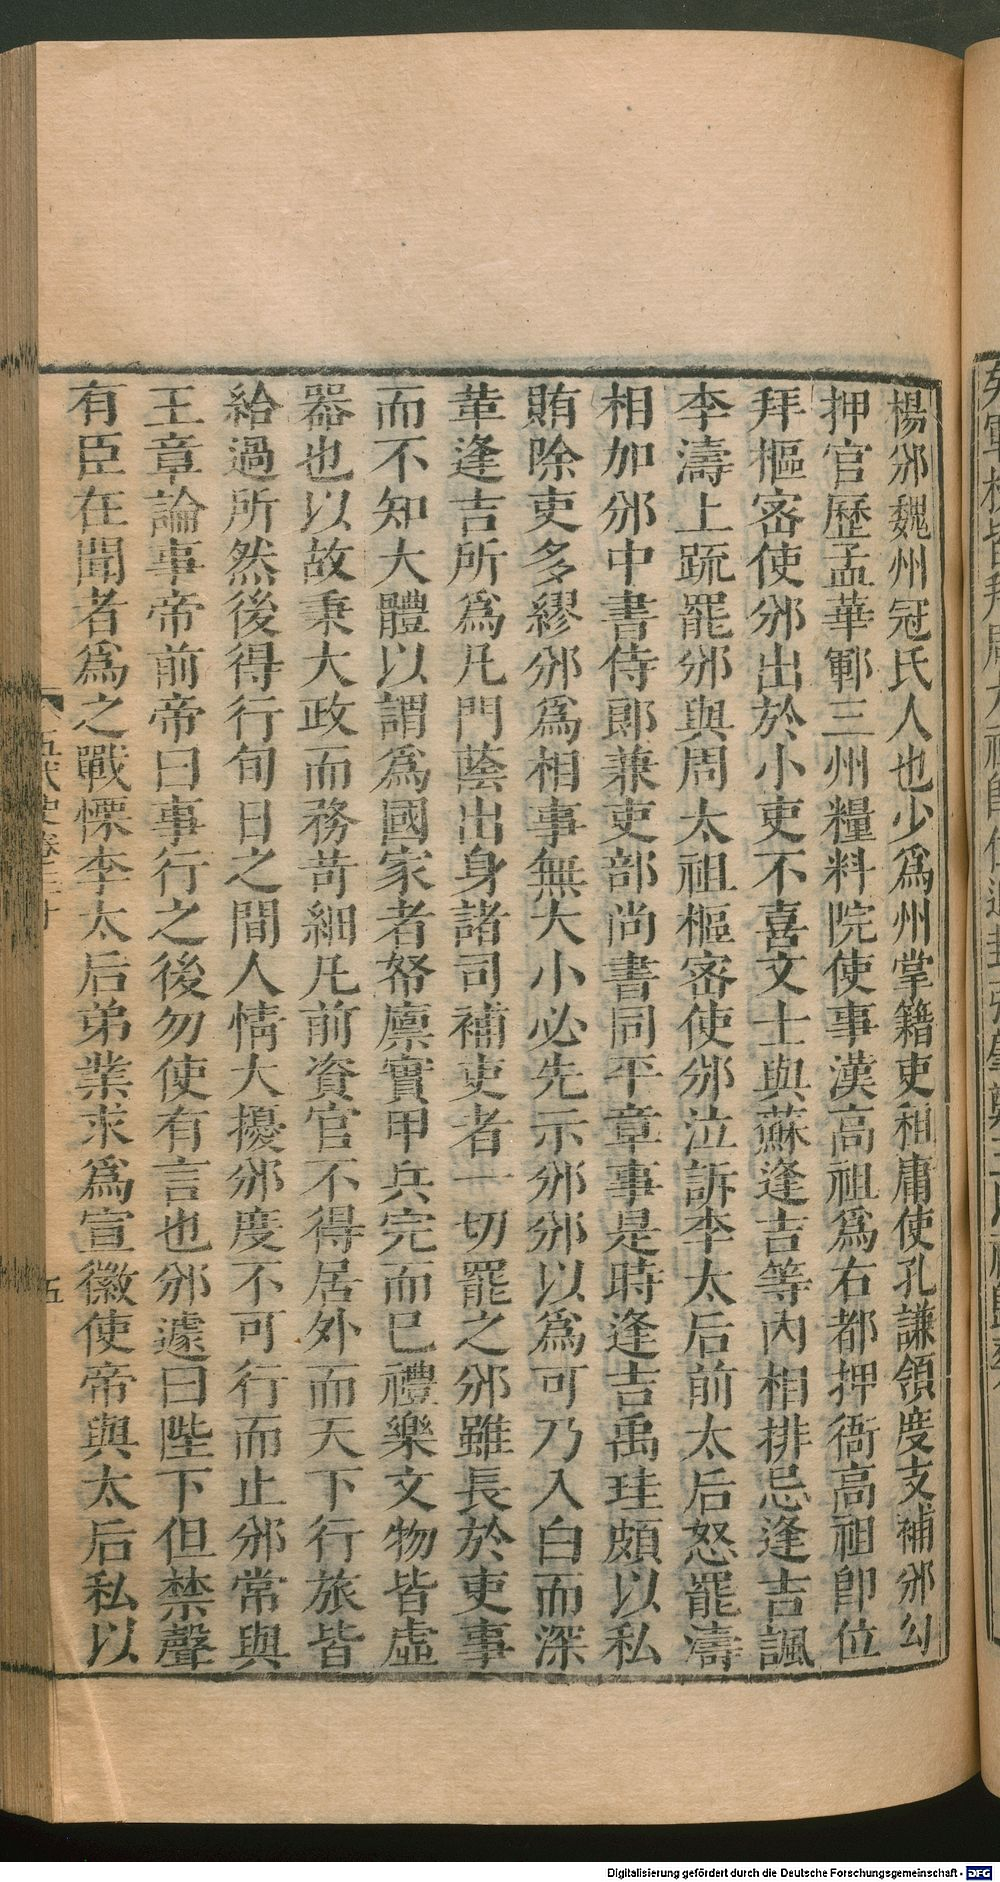 楊邠魏州冠氏人也少爲州掌籍吏租庸使孔謙領度支補邠勾
押官歷孟華鄆三州糧料院使事漢高祖爲右都押衙高祖卽位
拜樞密使邠出於小吏不喜文士與蘇逢吉等內相排忌逢吉諷
李濤上疏罷邠與周太祖樞密使邠泣訴李太后前太后怒罷濤
相加邠中書侍郎兼吏部尚書同平章事是時逢吉禹珪頗以私
賄除吏多繆邠爲相事無大小必先示邠邠以爲可乃入白而深
革逢吉所爲凡門蔭出身諸司補吏者一切罷之邠雖長於吏事
而不知大體以謂爲國家者帑廩實甲兵完而已禮樂文物皆虛
器也以故秉大政而務苛細凡前資官不得居外而天下行旅皆
給過所然後得行旬日之間人情大擾邠度不可行而止邠常與
王章論事帝前帝曰事行之後勿使有言也邠遽曰陛下但禁聲
有臣在聞者爲之戰慄李太后弟業求爲宣徽使帝與太后私以
五代史卷三十
五
Digitalisierung gefördert durch die Deutsche Forschungsgemeinschaft - DFG